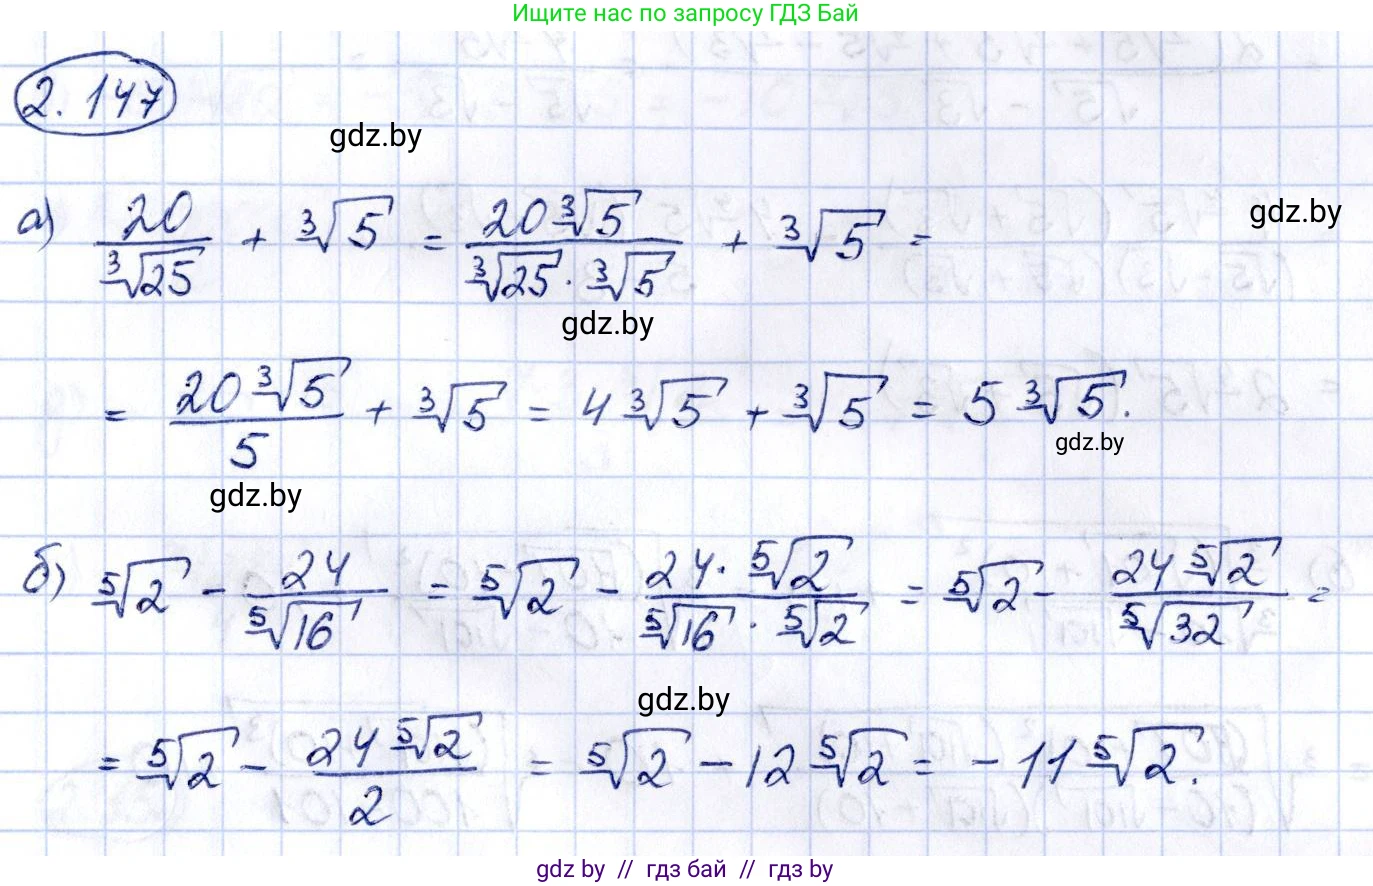 Ищите нас по запросу ГДЗ Бай
2.147
gdz.by
gdz.by
а) 20/∛25 + ∛5 = 20∛5/(∛25 · ∛5) + ∛5 =
gdz.by
= 20∛5/5 + ∛5 = 4∛5 + ∛5 = 5∛5.
gdz.by
gdz.by
б) ⁵√2 - 24/⁵√16 = ⁵√2 - 24 · ⁵√2/(⁵√16 · ⁵√2) = ⁵√2 - 24⁵√2/⁵√32 =
gdz.by
= ⁵√2 - 24⁵√2/2 = ⁵√2 - 12⁵√2 = -11⁵√2.
gdz by // гдз бай // гдз by